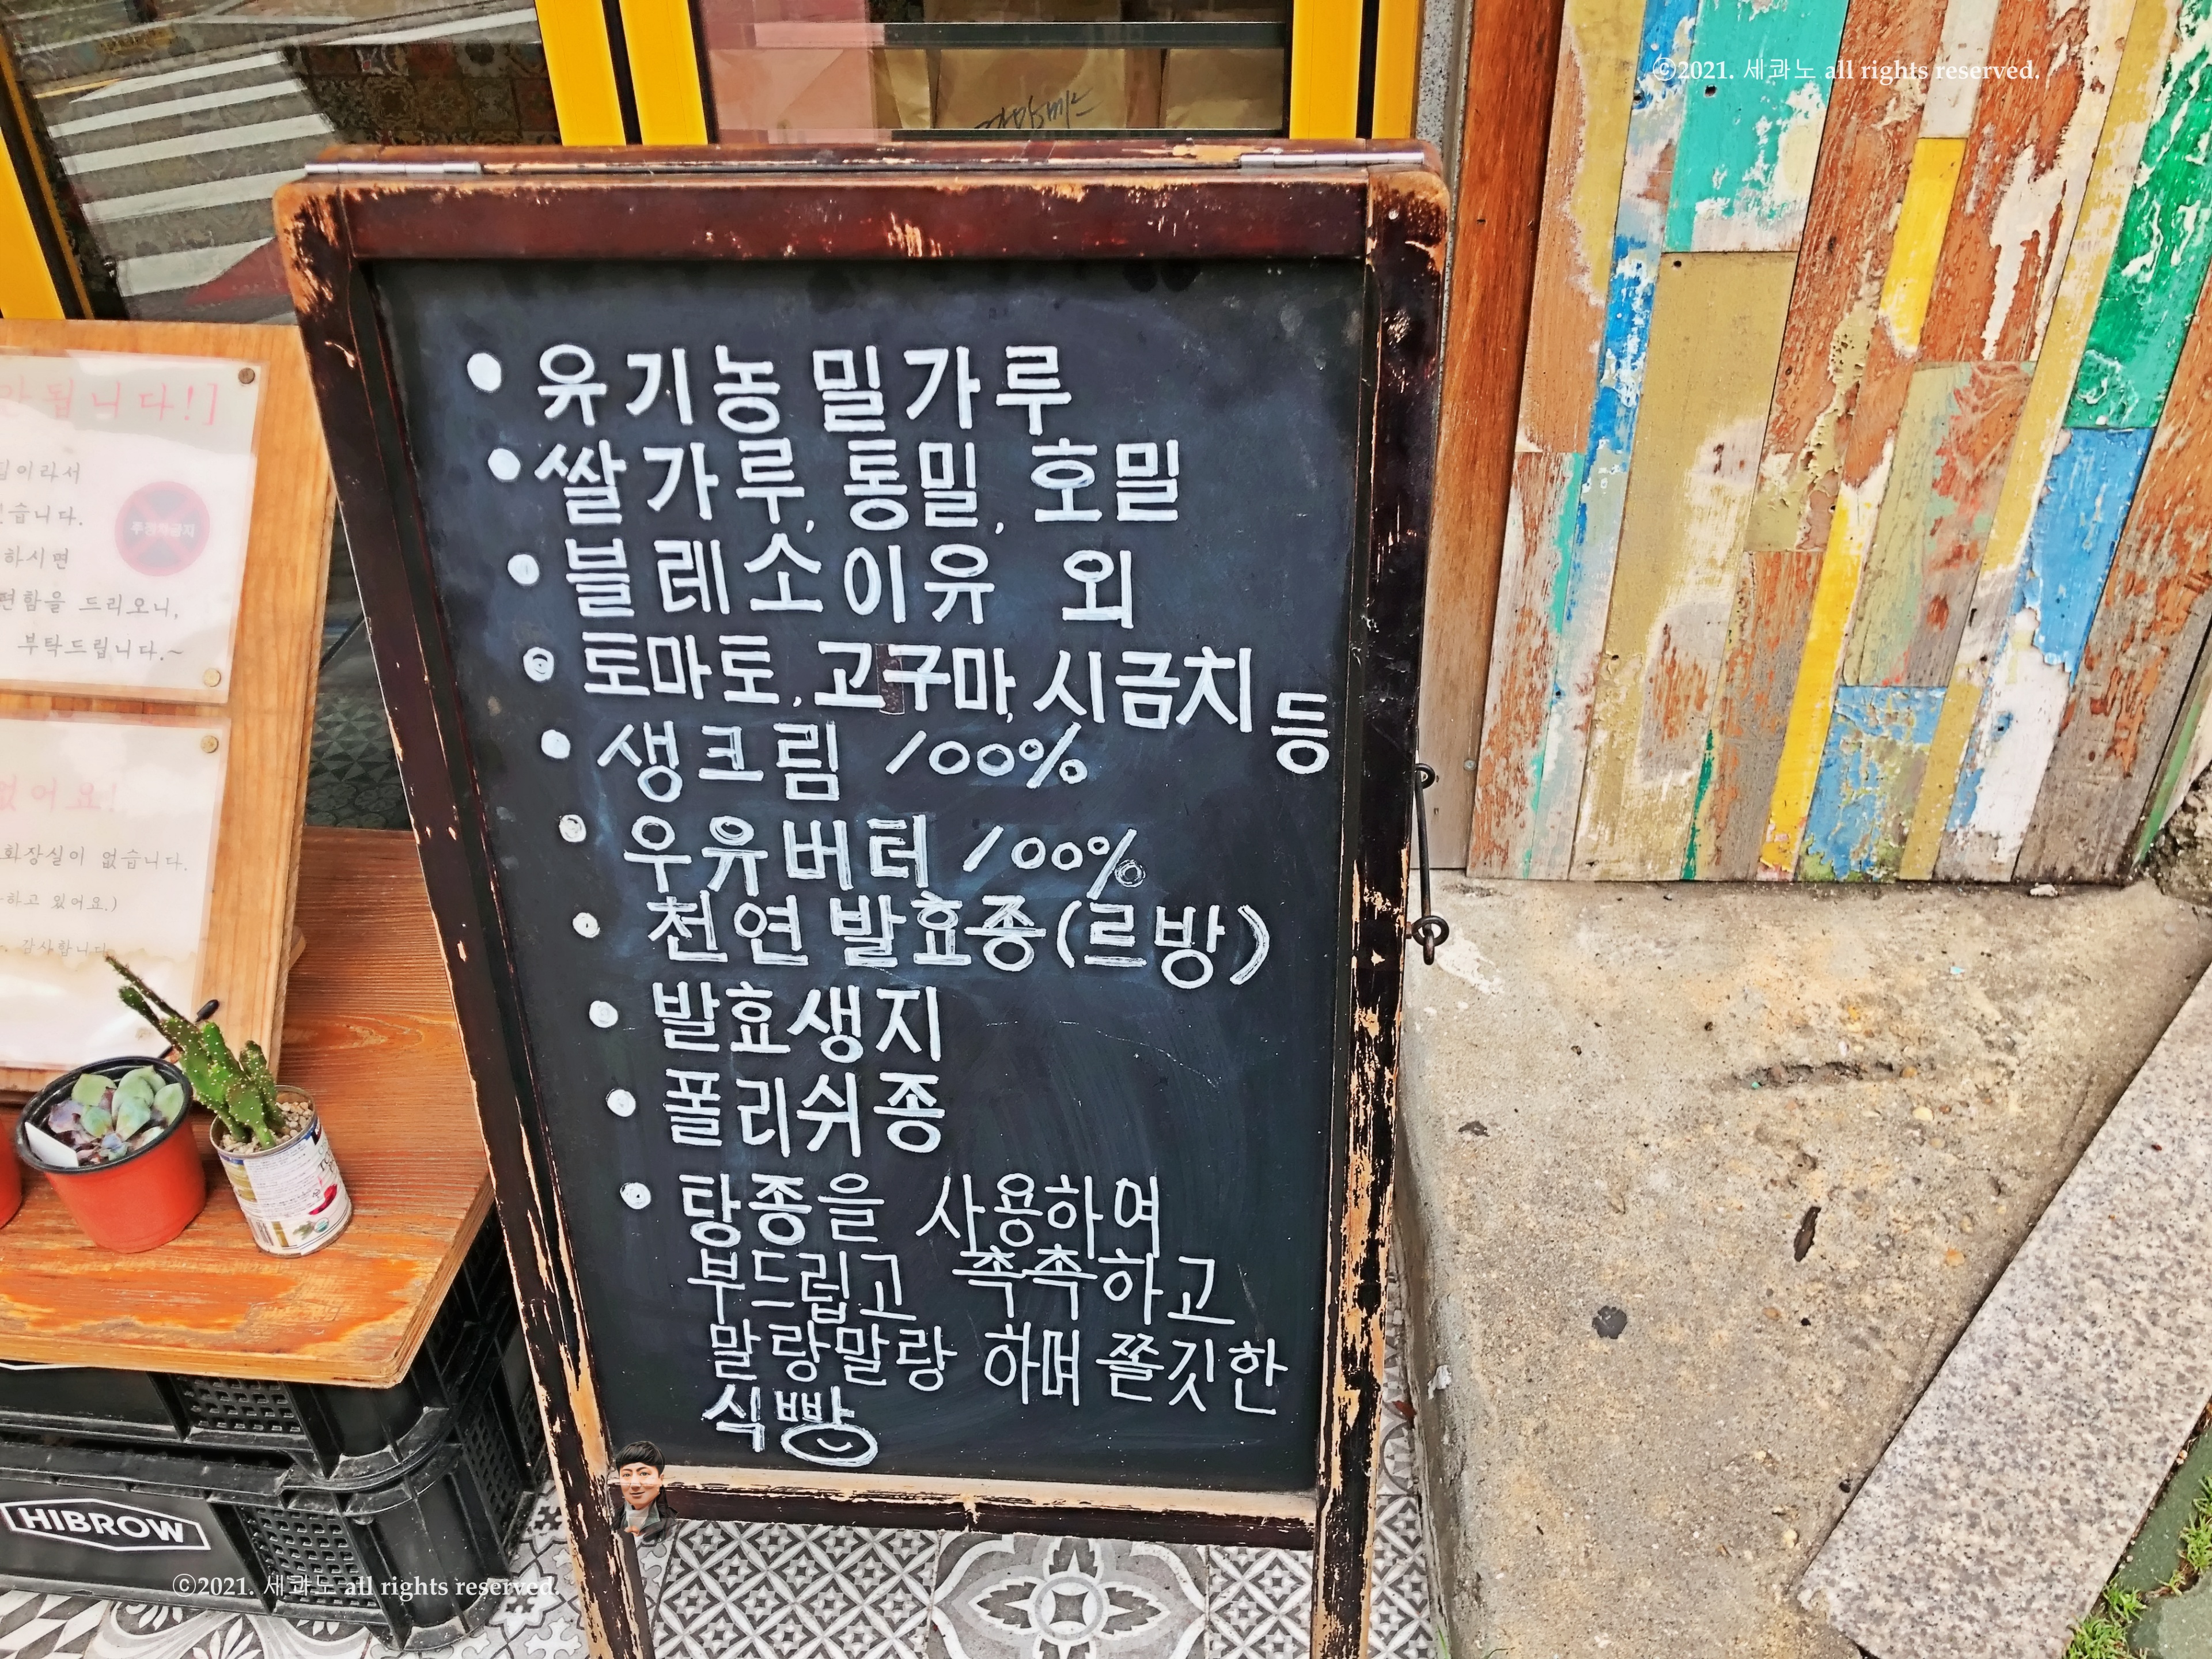 ⓒ2021. 세콰노 all rights reserved.
• 유기농 밀가루
• 쌀가루, 통밀, 호밀
• 블레소이유 외
• 토마토, 고구마, 시금치 등
• 생크림 100%
• 우유버터 100%
• 천연 발효종(르방)
• 발효생지
• 폴리쉬종
• 탕종을 사용하여
부드럽고 촉촉하고
말랑말랑 하며 쫄깃한
식빵
됩니다!]
이라서
습니다.
주정차금지
하시면
편함을 드리오니,
부탁드립니다.~
없어요!
화장실이 없습니다.
하고 있어요.)
감사합니다
HIBROW
ⓒ2021. 세콰노 all rights reserved.